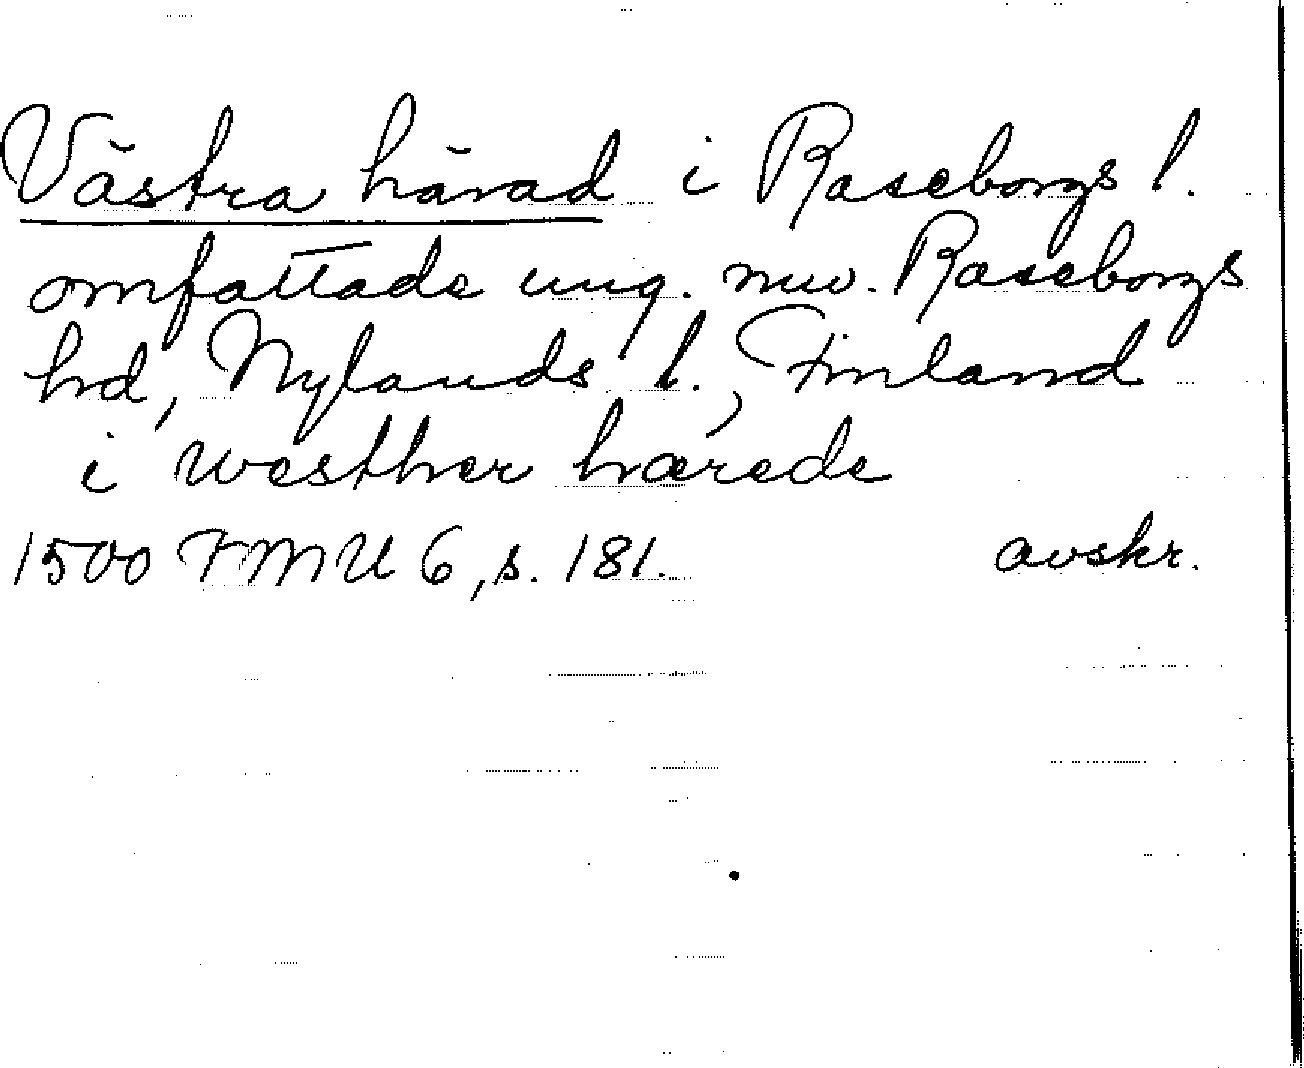 Västra härad i Raseborgs l.
omfattade ung. nuv. Raseborgs
hd, Nylands l., Finland
i westher hærede
1500 FMU 6, s. 181. avskr.